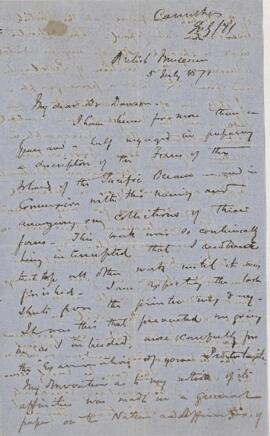 Carruthers
British Museum
5 July 1871
My dear Dr Dawson
I have been for more than a
year and a half engaged in preparing
a description of the Ferns of the
Islands of the Pacific Ocean and in
connexion with this naming and
arranging our collections of these
ferns. This work was so continually
being interrupted that I
to stop all other work until it was
finished. I am expecting the last
sheets from the printer
It was this that prevented my going
as I intended more carefully for
the examination of your Prototaxites
My as to my notion of its
affinities was made in a
paper on the Nature and Affinities of